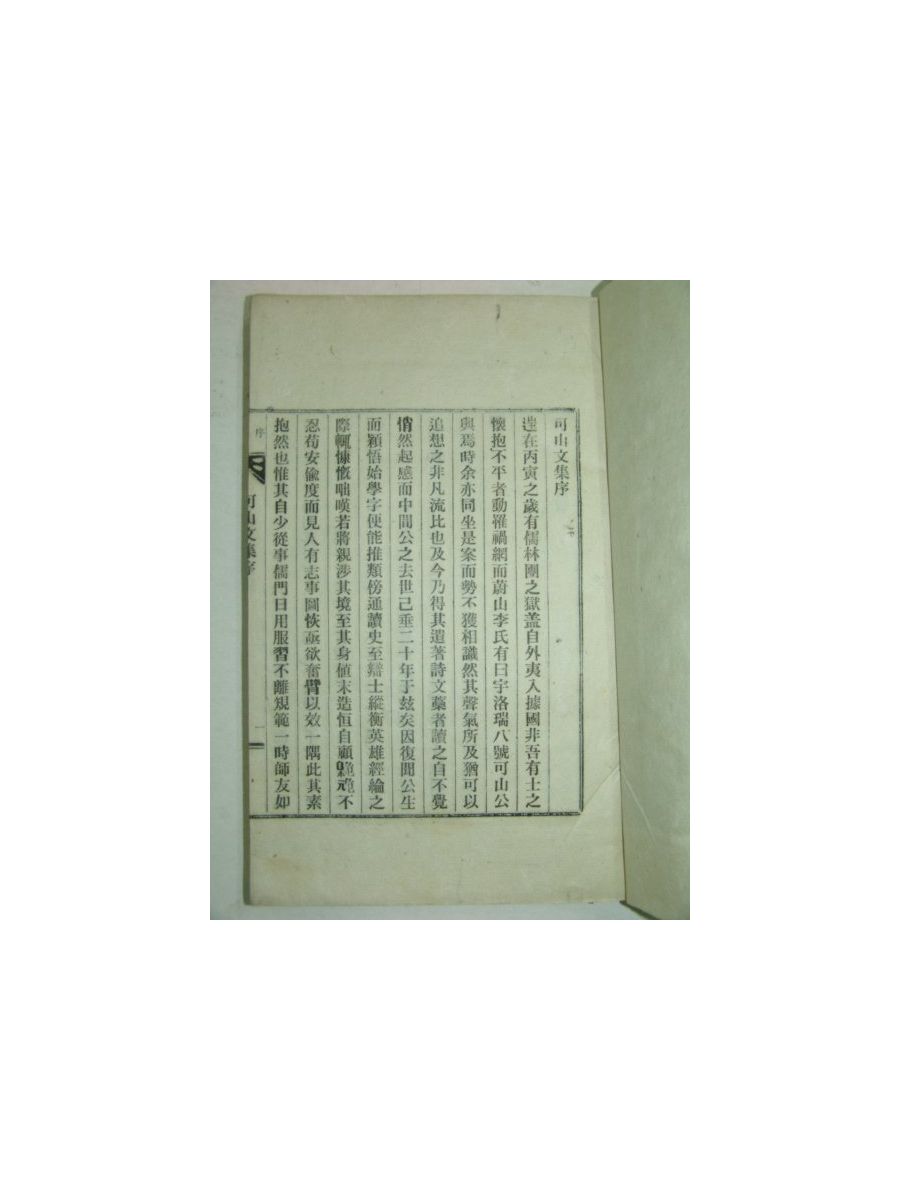 可山文集序
迬在丙寅之歲有儒林團之獄盖自外夷入據國非吾有士之
懷抱不平者動罹禍網而蔚山李氏有曰宇洛瑞八號可山公
與焉時余亦同坐是案而勢不獲相識然其聲氣所及猶可以
追想之非凡流比也及今乃得其遺著詩文藁者讀之自不覺
悄然起感而中間公之去世已垂二十年于玆矣因復聞公生
而穎悟始學字便能推類傍通讀史至辯士縱衡英雄經綸之
際輒慷慨咄嘆若將親涉其境至其身値末造恒自顧不
忍苟安偸度而見人有志事圖恢亟欲奮臂以效一隅此其素
抱然也惟其自少從事儒門日用服習不離䂓範一時師友如
序
可山文集序
一